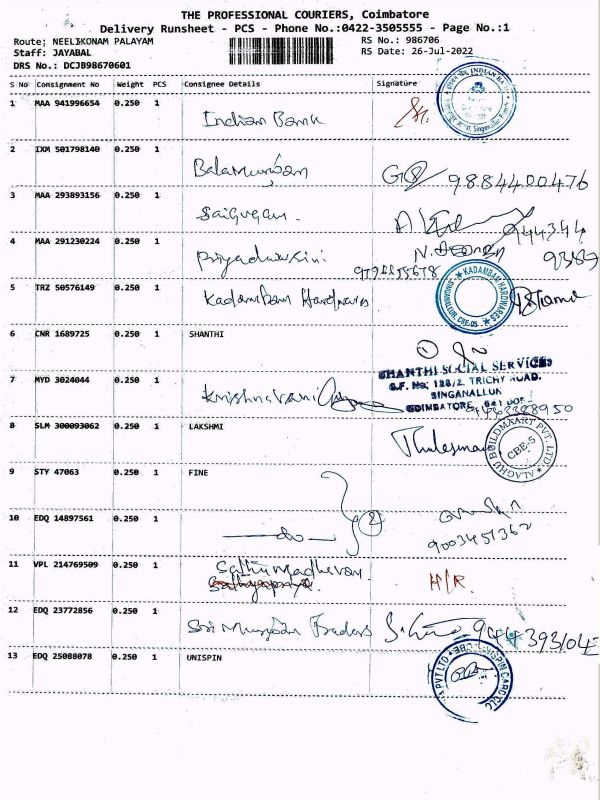 THE PROFESSIONAL COURIERS, Coimbatore
Delivery Runsheet - PCS - Phone No.:0422-3505555 - Page No.:1
Route: NEELIKONAM PALAYAM RS No.: 986706
Staff: JAYABAL RS Date: 26-Jul-2022
DRS No.: DCJB98670601
S No Consignment No Weight PCS Consignee Details Signature
1 MAA 941996654 0.250 1 Indian Bank
INDIAN BANK
2 IXM 501798140 0.250 1 Balamurugan 9884400476
3 MAA 293893156 0.250 1 Saigugan.
4 MAA 291230224 0.250 1 Priyadharsini
5 TRZ 50576149 0.250 1 Kadamban Hardwares
KADAMBAN HARDWARES
6 CNR 1689725 0.250 1 SHANTHI
SHANTHI SOCIAL SERVICES
S.F. No: 128/2, TRICHY ROAD.
SINGANALLUR
COIMBATORE
7 MYD 3024044 0.250 1 Krishnaveni
8 SLM 300093062 0.250 1 LAKSHMI
ALAGHU BUILDMAART PVT. LTD.
CBE-5
9 STY 47063 0.250 1 FINE
10 EDQ 14897561 0.250 1 do 2
9003451362
11 VPL 214769509 0.250 1 Sathumadhavan.
H/R.
12 EDQ 23772856 0.250 1 Sri Murugan Traders
13 EDQ 25088078 0.250 1 UNISPIN